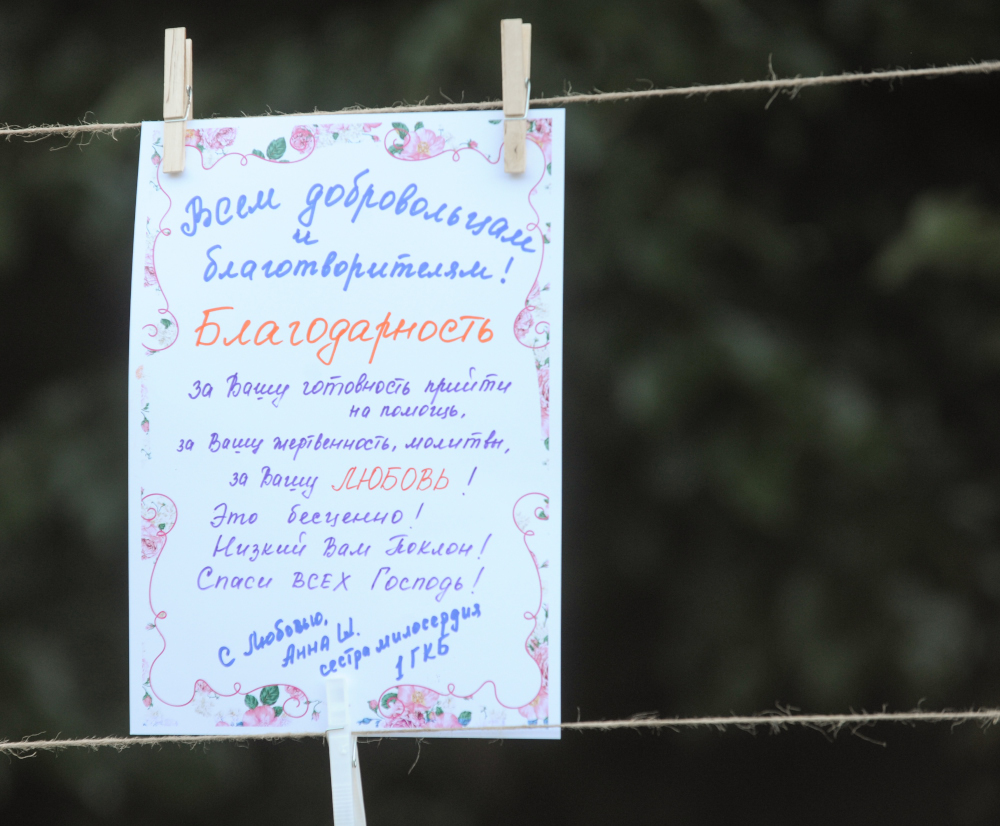 Всем добровольцам
и
благотворителям!
Благодарность
за Вашу готовность прийти
на помощь,
за Вашу жертвенность, молитвы,
за Вашу ЛЮБОВЬ!
Это бесценно!
Низкий Вам Поклон!
Спаси ВСЕХ Господь!
С Любовью,
Анна Ш.
сестра милосердия
1 ГКБ